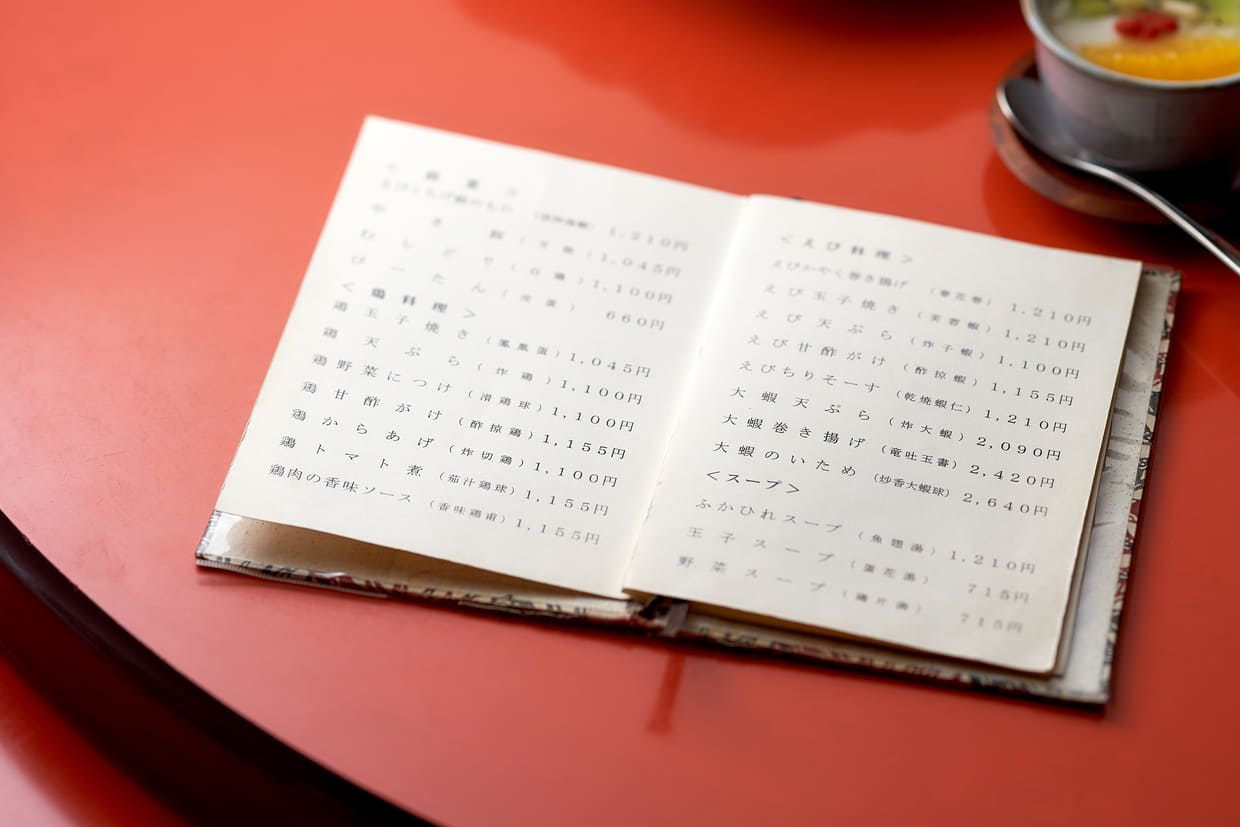 ＜前菜＞
1,210円
やき豚 1,045円
むしどり（白鶏）1,100円
ぴーたん（皮蛋）660円
＜鶏料理＞
鶏玉子焼き（鳳凰蛋）1,045円
鶏天ぷら（炸鶏）1,100円
鶏野菜につけ（滑鶏球）1,100円
鶏甘酢がけ（酢掠鶏）1,155円
鶏からあげ（炸切鶏）1,100円
鶏トマト煮（茄汁鶏球）1,155円
鶏肉の香味ソース（香味鶏甫）1,155円
＜えび料理＞
えびかやく巻き揚げ 1,210円
えび玉子焼き（芙蓉蝦）1,210円
えび天ぷら（炸子蝦）1,100円
えび甘酢がけ（酢掠蝦）1,155円
えびちりそーす（乾焼蝦仁）1,210円
大蝦天ぷら（炸大蝦）2,090円
大蝦巻き揚げ（竜吐玉書）2,420円
大蝦のいため（炒香大蝦球）2,640円
＜スープ＞
ふかひれスープ（魚翅湯）1,210円
玉子スープ（蛋花湯）715円
野菜スープ 715円